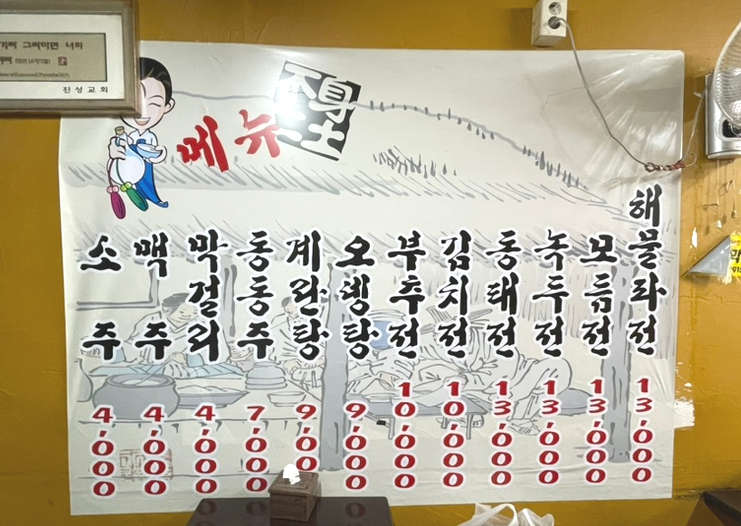 진성교회
메뉴
소주 4,000
맥주 4,000
막걸리 4,000
동동주 7,000
계란탕 9,000
오뎅탕 9,000
부추전 10,000
김치전 10,000
동태전 13,000
녹두전 13,000
모듬전 13,000
해물파전 13,000